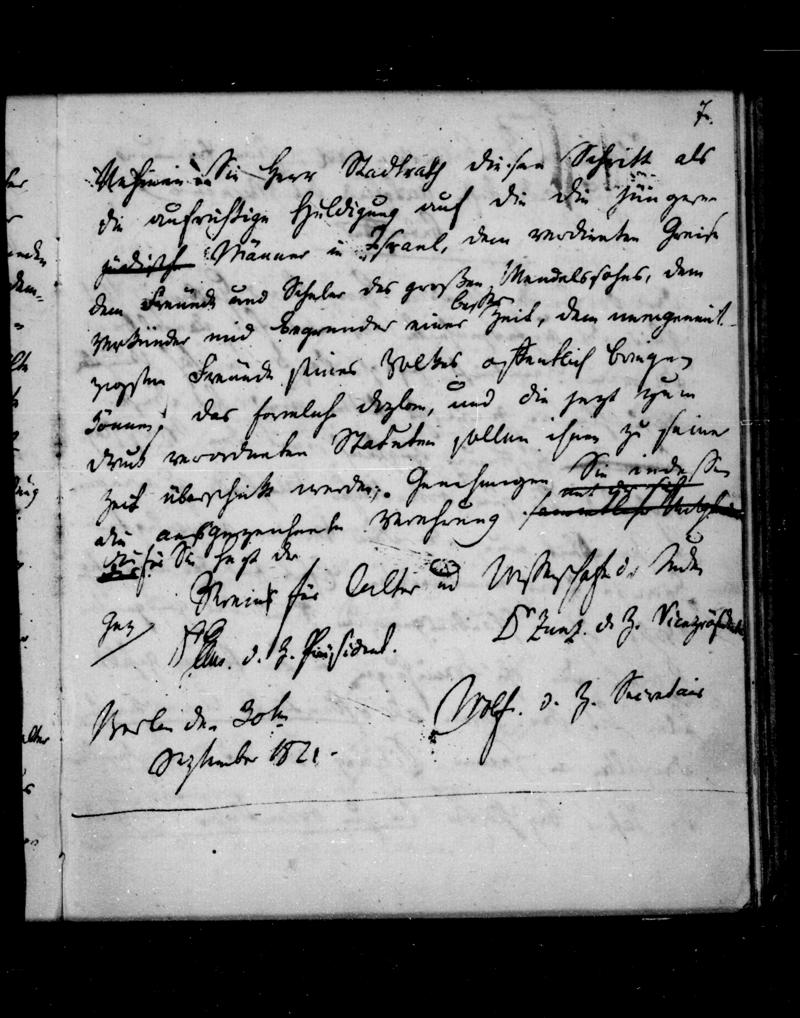 7.
Nehmen Sie Herr Stadtrath diesen Schritt als
die aufrichtige Huldigung auf die die jüngere
jüdische Männer in Israel, dem verdienten Greise
dem Freunde und Schüler des großen Mendelssohns, dem
Verkünder und Begründer einer bessern Zeit, dem uneigennüt-
zigsten Freunde seines Volkes öffentlich bringen
können; das förmliche Diplom, und die jetzt zum
Druck verordneten Statuten sollen ihnen zu seiner
Zeit überschickt werden. Genehmigen Sie indessen
die ausgezeichnete Verehrung mit der sich
für Sie hegt der
Verein für Cultur und Wissenschaft d. Juden
gez
Dr Gans. d. Z. Präsident.
Dr Zunz. d. Z. Vicepräsident
Wolf. d. Z. Secretair
Berlin den 30ten
September 1821.